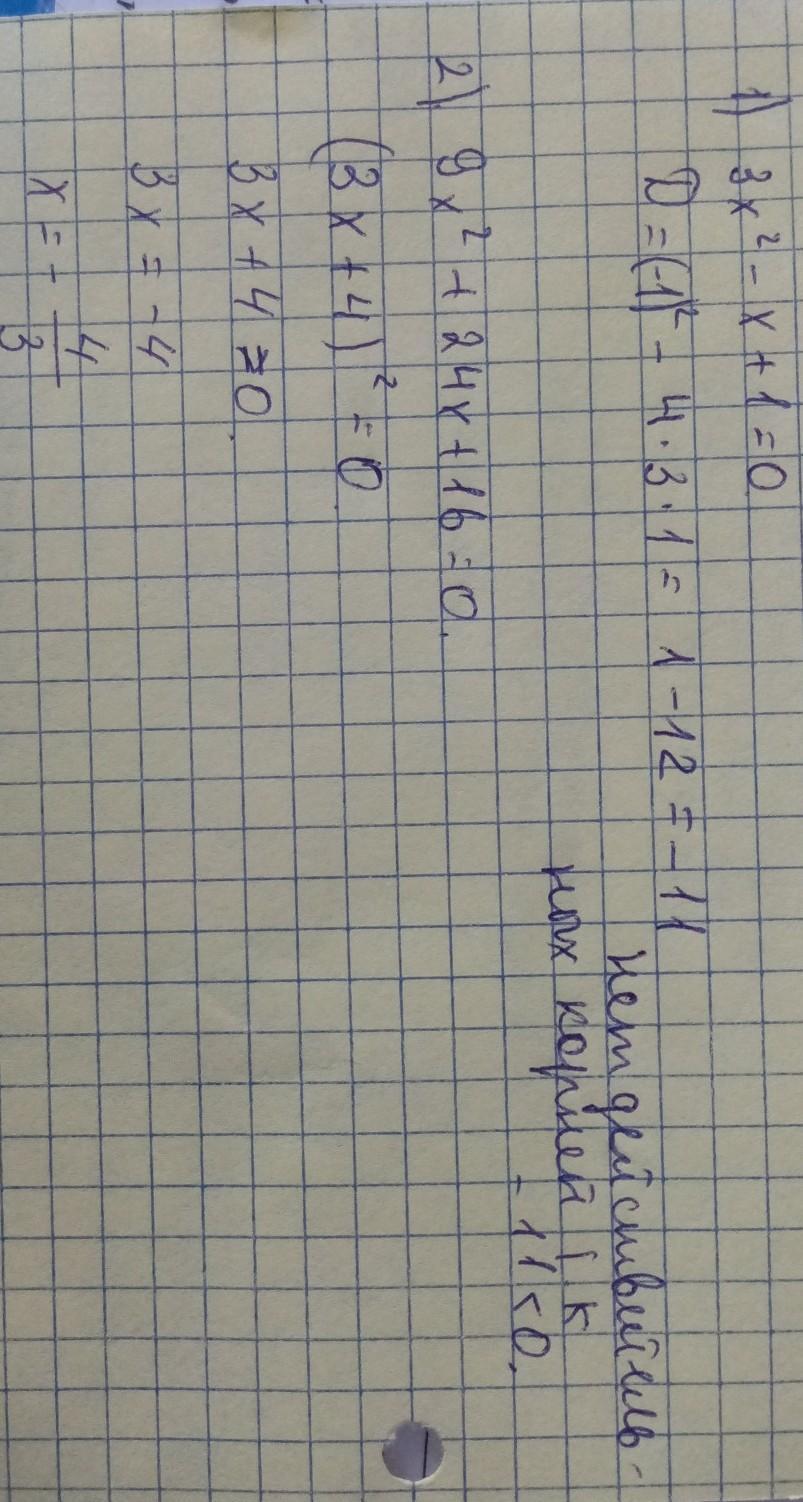 1) 3x² - x + 1 = 0
D = (-1)² - 4 · 3 · 1 = 1 - 12 = -11
нет действитель-
ных корней т к
- 11 < 0.
2) 9x² + 24x + 16 = 0.
(3x + 4)² = 0
3x + 4 = 0
3x = -4
x = - 4/3